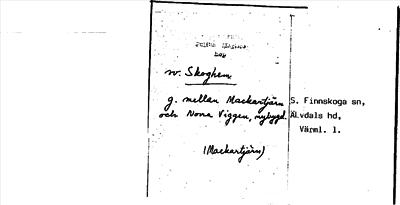 nv. Skoghem
g. mellan Mackartjärn S. Finnskoga sn,
och Norra Viggen, nybygd. Älvdals hd,
Värml. l.
(Mackartjärn)